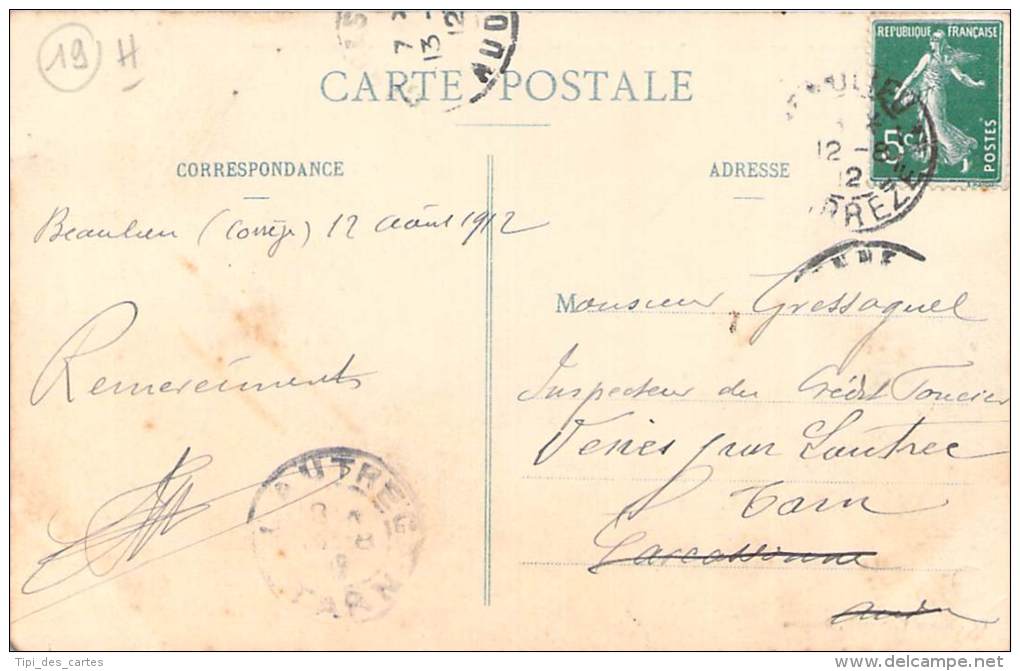 19 H
13 -
12
CARTE POSTALE
REPUBLIQUE FRANÇAISE
5c
POSTES
12 - 8
12
CORRESPONDANCE
ADRESSE
Beaulieu (Corrèze) 12 août 1912
Monsieur Gressaguel
Remerciements
Inspecteur du Crédit Foncier
Venes par Lautrec
Tarn
LAUTREC
TARN
Carcassonne
Aude
Tipi_des_cartes
delcampe.net